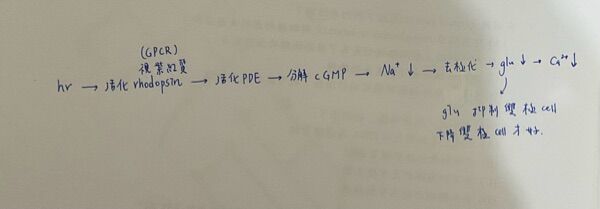 (GPCR)
視紫紅質
hν → 活化 rhodopsin → 活化 PDE → 分解 cGMP → Na⁺ ↓ → 去極化 → glu ↓ → Ca²⁺ ↓
glu 抑制 雙極 cell
下降 雙極 cell 才好.